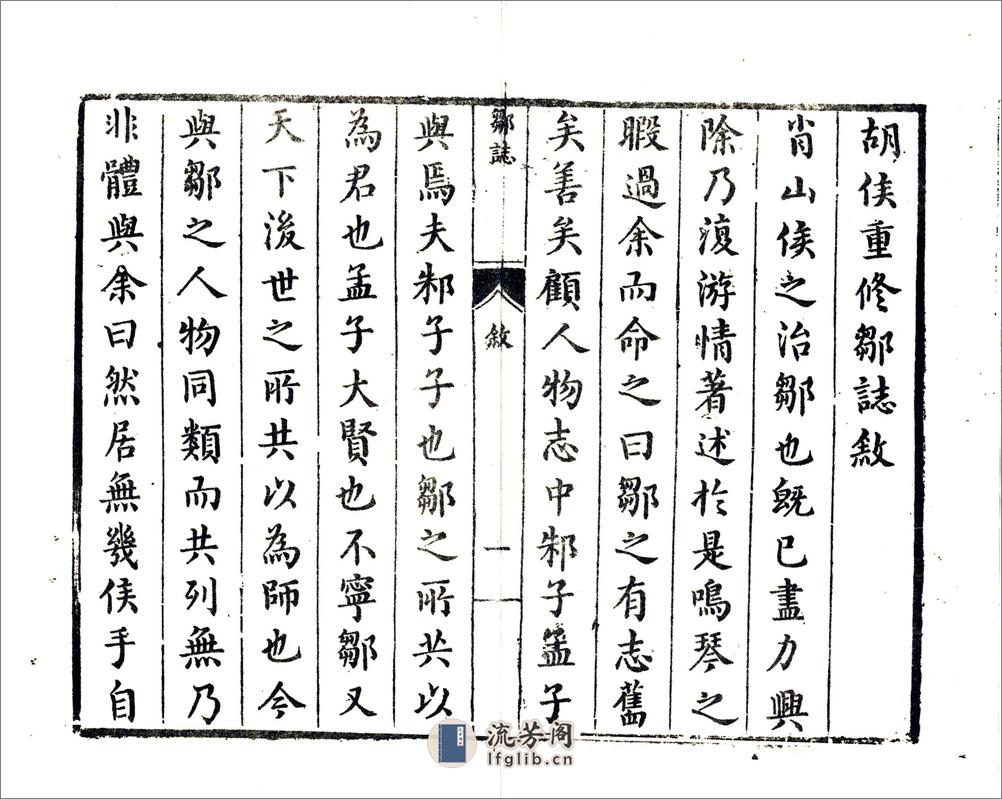 胡侯重修鄒誌敘
肖山侯之治鄒也既已盡力興
除乃復游情著述於是鳴琴之
暇過余而命之曰鄒之有志舊
矣善矣顧人物志中邾子孟子
鄒誌 敘 一
與焉夫邾子子也鄒之所共以
為君也孟子大賢也不寧鄒又
天下後世之所共以為師也今
與鄒之人物同類而共列無乃
非體與余曰然居無幾侯手自
流芳阁
lfglib.cn